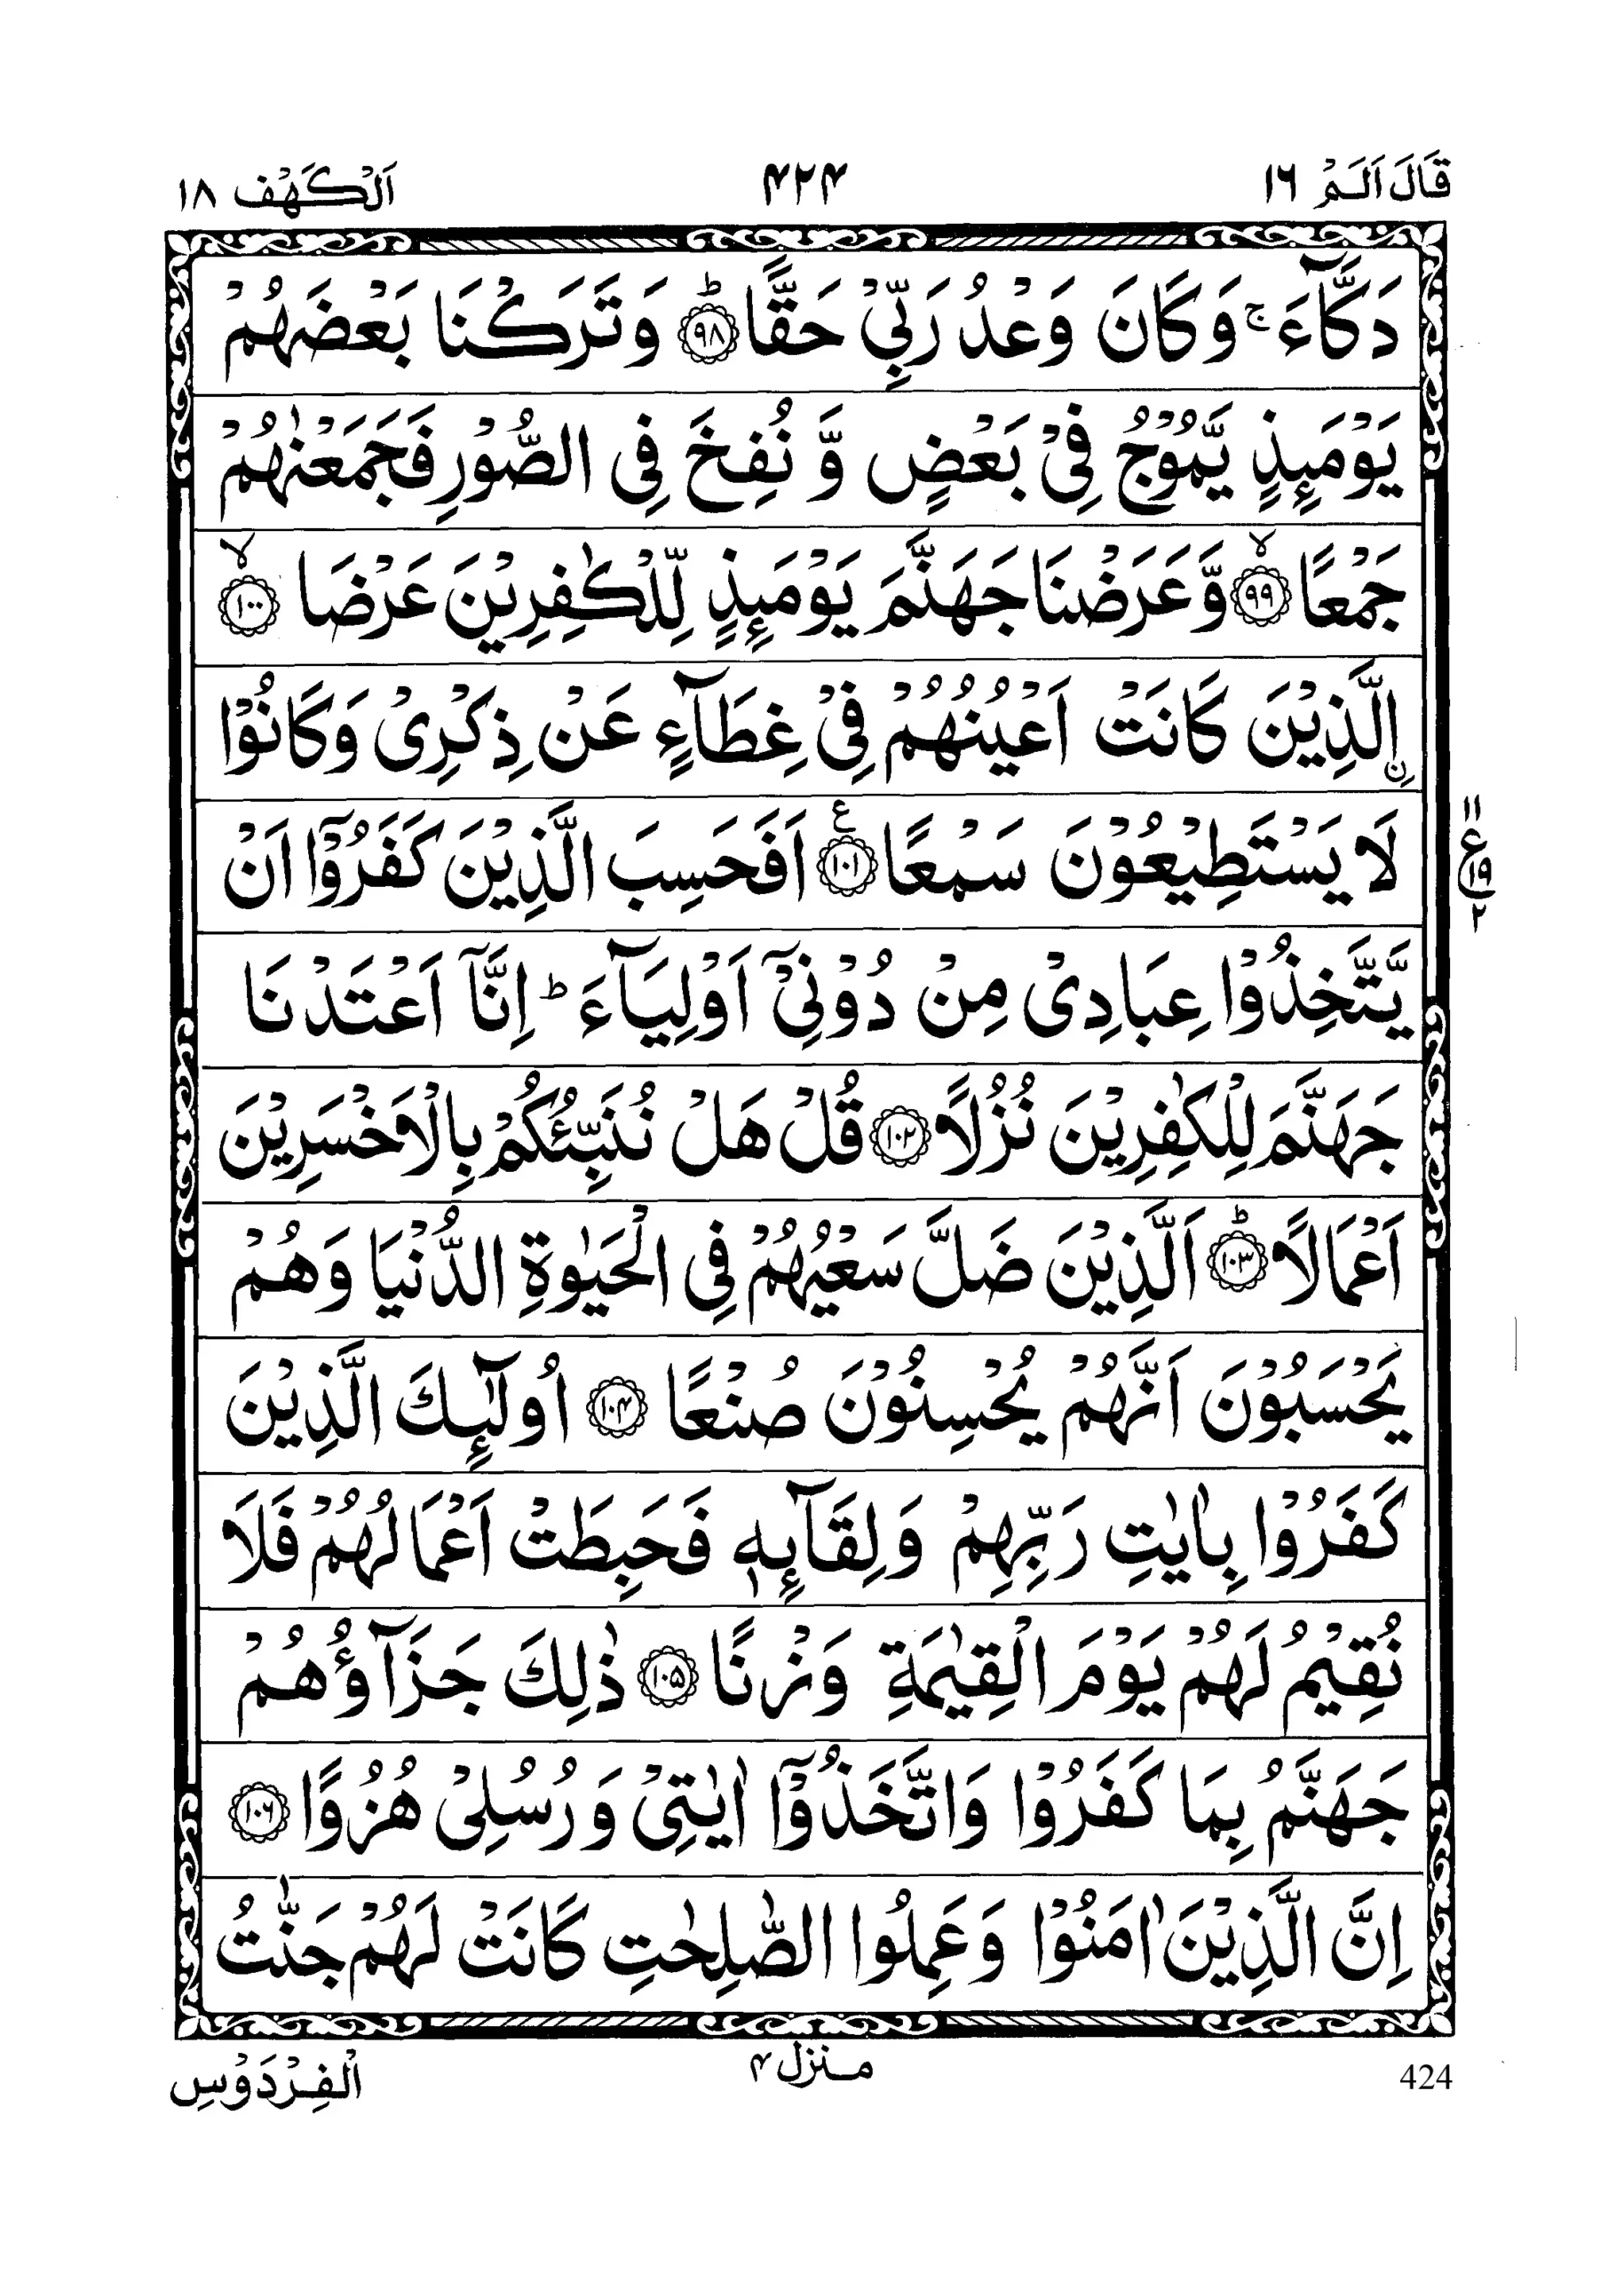 قَالَ اَلَمْ ١٦ ۴۲۴ اَلْكَهْف ١٨
دَكَّآءَ ۚ وَكَانَ وَعْدُ رَبِّیْ حَقًّا ؕ﴿۹۸﴾ وَتَرَكْنَا بَعْضَهُمْ
یَوْمَىِٕذٍ یَّمُوْجُ فِیْ بَعْضٍ وَّ نُفِخَ فِی الصُّوْرِ فَجَمَعْنٰهُمْ
جَمْعًا ۙ﴿۹۹﴾ وَّعَرَضْنَا جَهَنَّمَ یَوْمَىِٕذٍ لِّلْكٰفِرِیْنَ عَرْضَا ۙ﴿۱۰۰﴾
ِ۟الَّذِیْنَ كَانَتْ اَعْیُنُهُمْ فِیْ غِطَآءٍ عَنْ ذِكْرِیْ وَكَانُوْا
لَا یَسْتَطِیْعُوْنَ سَمْعًا ﴿۱۰۱﴾ع اَفَحَسِبَ الَّذِیْنَ كَفَرُوْۤا اَنْ
یَّتَّخِذُوْا عِبَادِیْ مِنْ دُوْنِیْۤ اَوْلِیَآءَ ؕ اِنَّاۤ اَعْتَدْنَا
جَهَنَّمَ لِلْكٰفِرِیْنَ نُزُلًا ﴿۱۰۲﴾ قُلْ هَلْ نُنَبِّئُكُمْ بِالْاَخْسَرِیْنَ
اَعْمَالًا ؕ﴿۱۰۳﴾ اَلَّذِیْنَ ضَلَّ سَعْیُهُمْ فِی الْحَیٰوةِ الدُّنْیَا وَهُمْ
یَحْسَبُوْنَ اَنَّهُمْ یُحْسِنُوْنَ صُنْعًا ﴿۱۰۴﴾ اُولٰٓىِٕكَ الَّذِیْنَ
كَفَرُوْا بِاٰیٰتِ رَبِّهِمْ وَلِقَآىِٕهٖ فَحَبِطَتْ اَعْمَالُهُمْ فَلَا
نُقِیْمُ لَهُمْ یَوْمَ الْقِیٰمَةِ وَزْنًا ﴿۱۰۵﴾ ذٰلِكَ جَزَآؤُهُمْ
جَهَنَّمُ بِمَا كَفَرُوْا وَاتَّخَذُوْۤا اٰیٰتِیْ وَرُسُلِیْ هُزُوًا ﴿۱۰۶﴾
اِنَّ الَّذِیْنَ اٰمَنُوْا وَعَمِلُوا الصّٰلِحٰتِ كَانَتْ لَهُمْ جَنّٰتُ
١١
ع ١٩
٢
424 منزل ۴ الْفِرْدَوْسِ